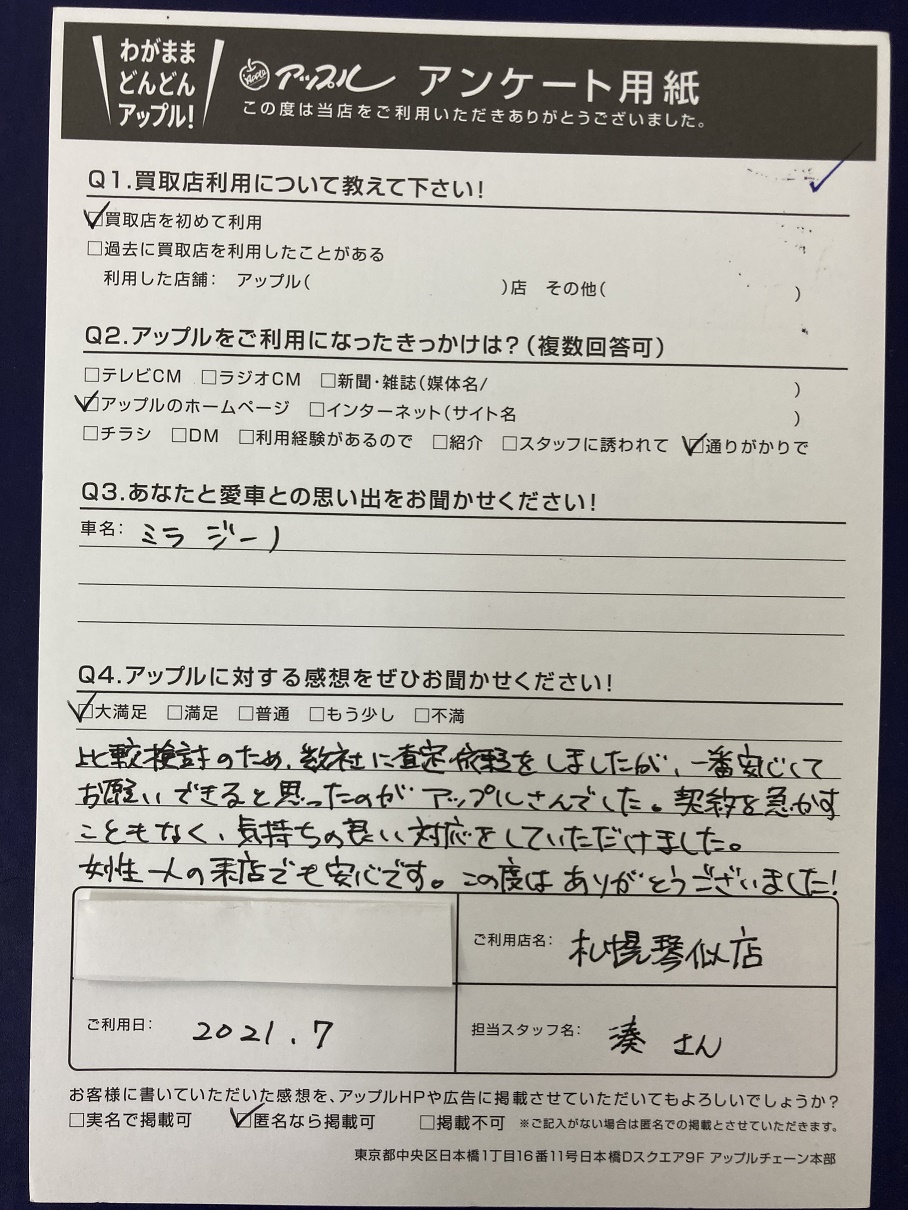 わがまま
どんどん
アップル!
Apple アップル アンケート用紙
この度は当店をご利用いただきありがとうございました。
Q1.買取店利用について教えて下さい!
□買取店を初めて利用
□過去に買取店を利用したことがある
利用した店舗: アップル( )店 その他( )
Q2.アップルをご利用になったきっかけは?(複数回答可)
□テレビCM □ラジオCM □新聞・雑誌(媒体名/ )
□アップルのホームページ □インターネット(サイト名 )
□チラシ □DM □利用経験があるので □紹介 □スタッフに誘われて □通りがかりで
Q3.あなたと愛車との思い出をお聞かせください!
車名: ミラ ジーノ
Q4.アップルに対する感想をぜひお聞かせください!
□大満足 □満足 □普通 □もう少し □不満
比較検討のため、数社に査定依頼をしましたが、一番安心して
お願いできると思ったのがアップルさんでした。契約を急かす
こともなく、気持ちの良い対応をしていただけました。
女性一人の来店でも安心です。この度はありがとうございました!
ご利用店名: 札幌琴似店
ご利用日: 2021.7
担当スタッフ名: 湊 さん
お客様に書いていただいた感想を、アップルHPや広告に掲載させていただいてもよろしいでしょうか?
□実名で掲載可 □匿名なら掲載可 □掲載不可 ※ご記入がない場合は匿名での掲載とさせていただきます。
東京都中央区日本橋1丁目16番11号日本橋Dスクエア9F アップルチェーン本部